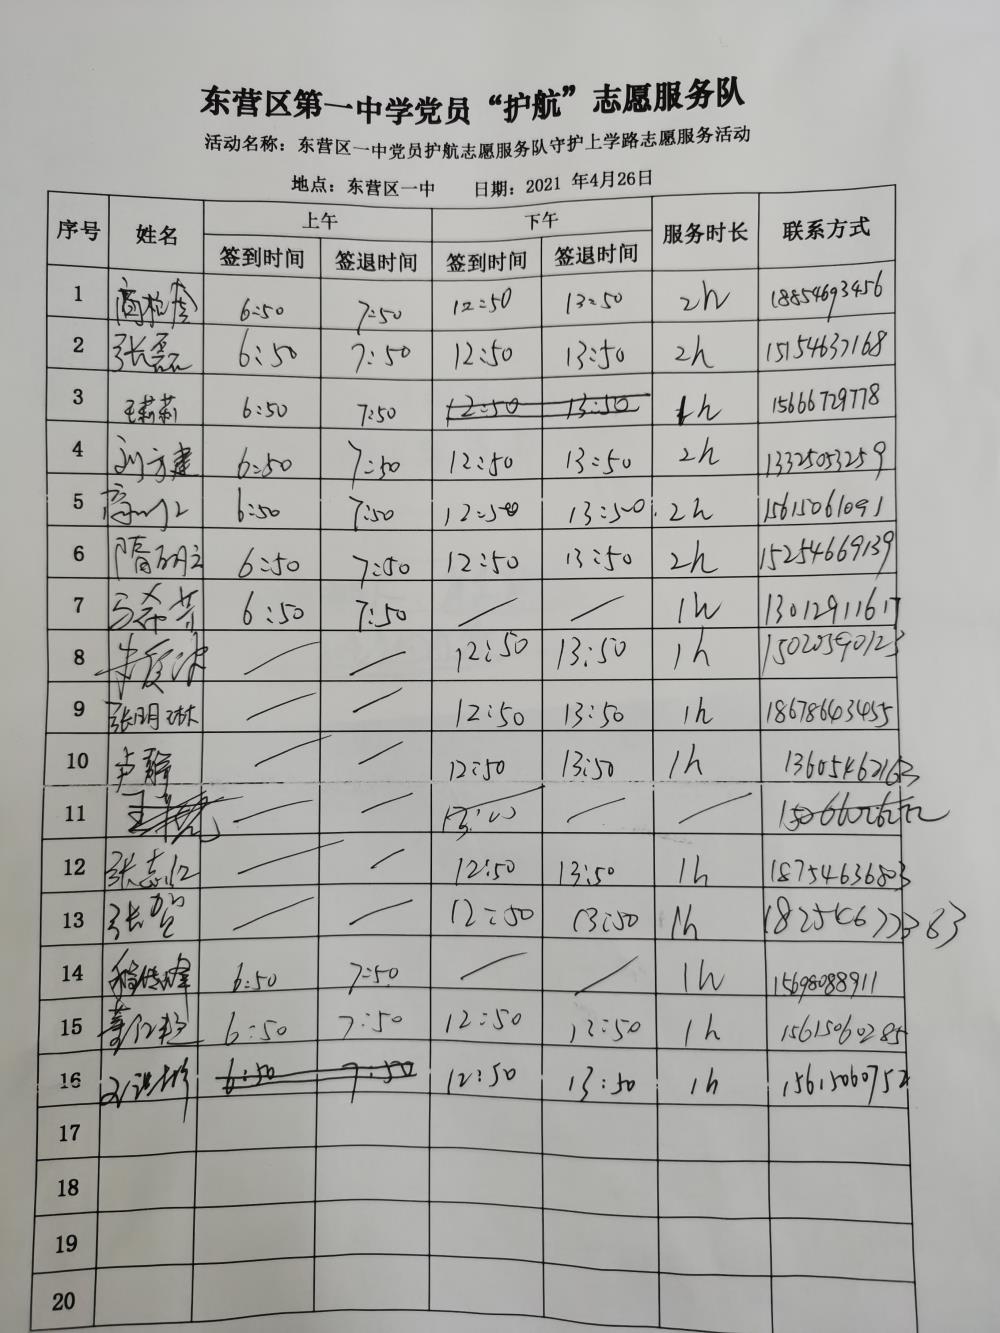 东营区第一中学党员“护航”志愿服务队
活动名称：东营区一中党员护航志愿服务队守护上学路志愿服务活动
地点：东营区一中 日期：2021 年4月26日
序号 姓名 上午 下午 服务时长 联系方式
签到时间 签退时间 签到时间 签退时间
1 6:50 7:50 12:50 13:50 2h 18854693456
2 张磊 6:50 7:50 12:50 13:50 2h 15154637168
3 王莉莉 6:50 7:50 12:50 13:50 1h 15666729778
4 刘方建 6:50 7:50 12:50 13:50 2h 13325053259
5 6:50 7:50 12:50 13:50 2h 15615061091
6 隋 6:50 7:50 12:50 13:50 2h 15254669139
7 6:50 7:50 / / 1h 13012911617
8 / / 12:50 13:50 1h 15020590123
9 张明琳 / / 12:50 13:50 1h 18678643455
10 卢翰 / / 12:50 13:50 1h 13605462163
11 / / / /
12 张志红 / / 12:50 13:50 1h 18754636803
13 张贺 / / 12:50 13:50 1h
14 6:50 7:50 / / 1h 15698088911
15 6:50 7:50 12:50 12:50 1h 15615060285
16 6:50 7:50 12:50 13:50 1h 15615060752
17
18
19
20